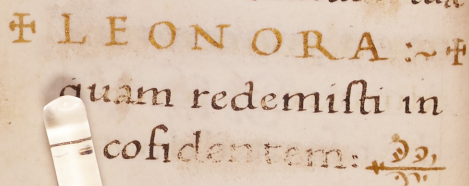 ✠ LEONORA :~ ✠
quam redemiſti in
cofidentem: